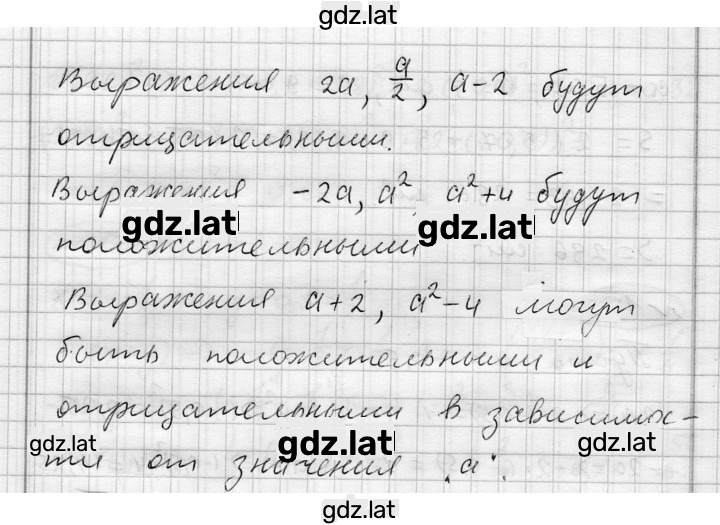 gdz.lat
Выражения 2a, a/2, a-2 будут
отрицательными.
Выражения -2a, a², a²+4 будут
gdz.lat gdz.lat
положительными
Выражения a+2, a²-4 могут
быть положительными и
отрицательными в зависимос-
gdz.lat gdz.lat gdz.lat
ти от значения "a".
gdz.lat